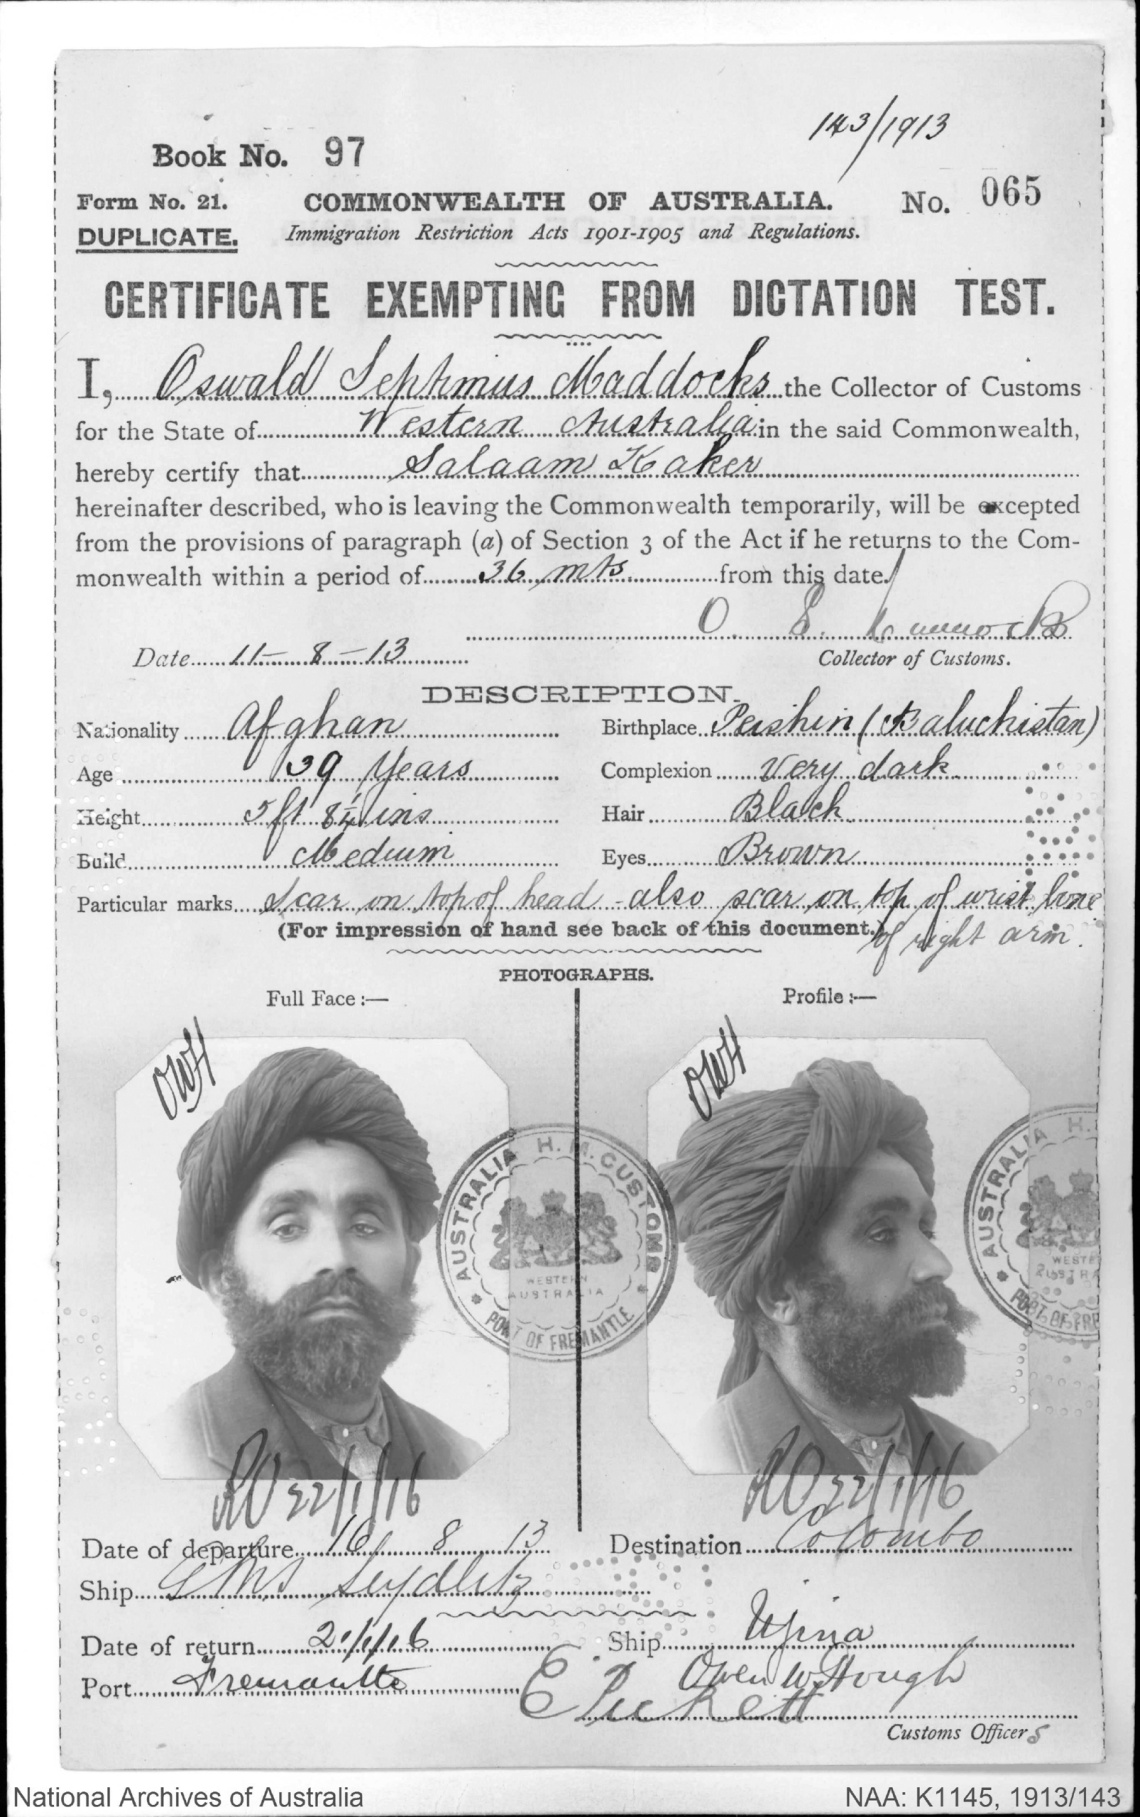 143/1913
Book No. 97
Form No. 21. COMMONWEALTH OF AUSTRALIA. No. 065
DUPLICATE. Immigration Restriction Acts 1901-1905 and Regulations.
CERTIFICATE EXEMPTING FROM DICTATION TEST.
I, Oswald Septimus Maddocks the Collector of Customs
for the State of Western Australia in the said Commonwealth,
hereby certify that Salaam Kaker
hereinafter described, who is leaving the Commonwealth temporarily, will be excepted
from the provisions of paragraph (a) of Section 3 of the Act if he returns to the Com-
monwealth within a period of 36 mts. from this date.
Date 11-8-13 Collector of Customs.
DESCRIPTION.
Nationality Afghan Birthplace Peishin (Baluchistan)
Age 39 Years Complexion Very dark
Height 5ft 8¼ ins Hair Black
Build Medium Eyes Brown
Particular marks Scar on top of head - also scar on top of wrist bone
(For impression of hand see back of this document.) of right arm.
PHOTOGRAPHS.
Full Face:— Profile:—
OWH OWH
AUSTRALIA H. M. CUSTOMS
WESTERN
AUSTRALIA
PORT OF FREMANTLE
AUSTRALIA H.
22/1/16 22/1/16
Date of departure 16 8 13 Destination Colombo
Ship GMS Seydlitz
Date of return 21/1/16 Ship Ujina
Port Fremantle Owen W Hough
E Pickett
Customs Officers
National Archives of Australia NAA: K1145, 1913/143